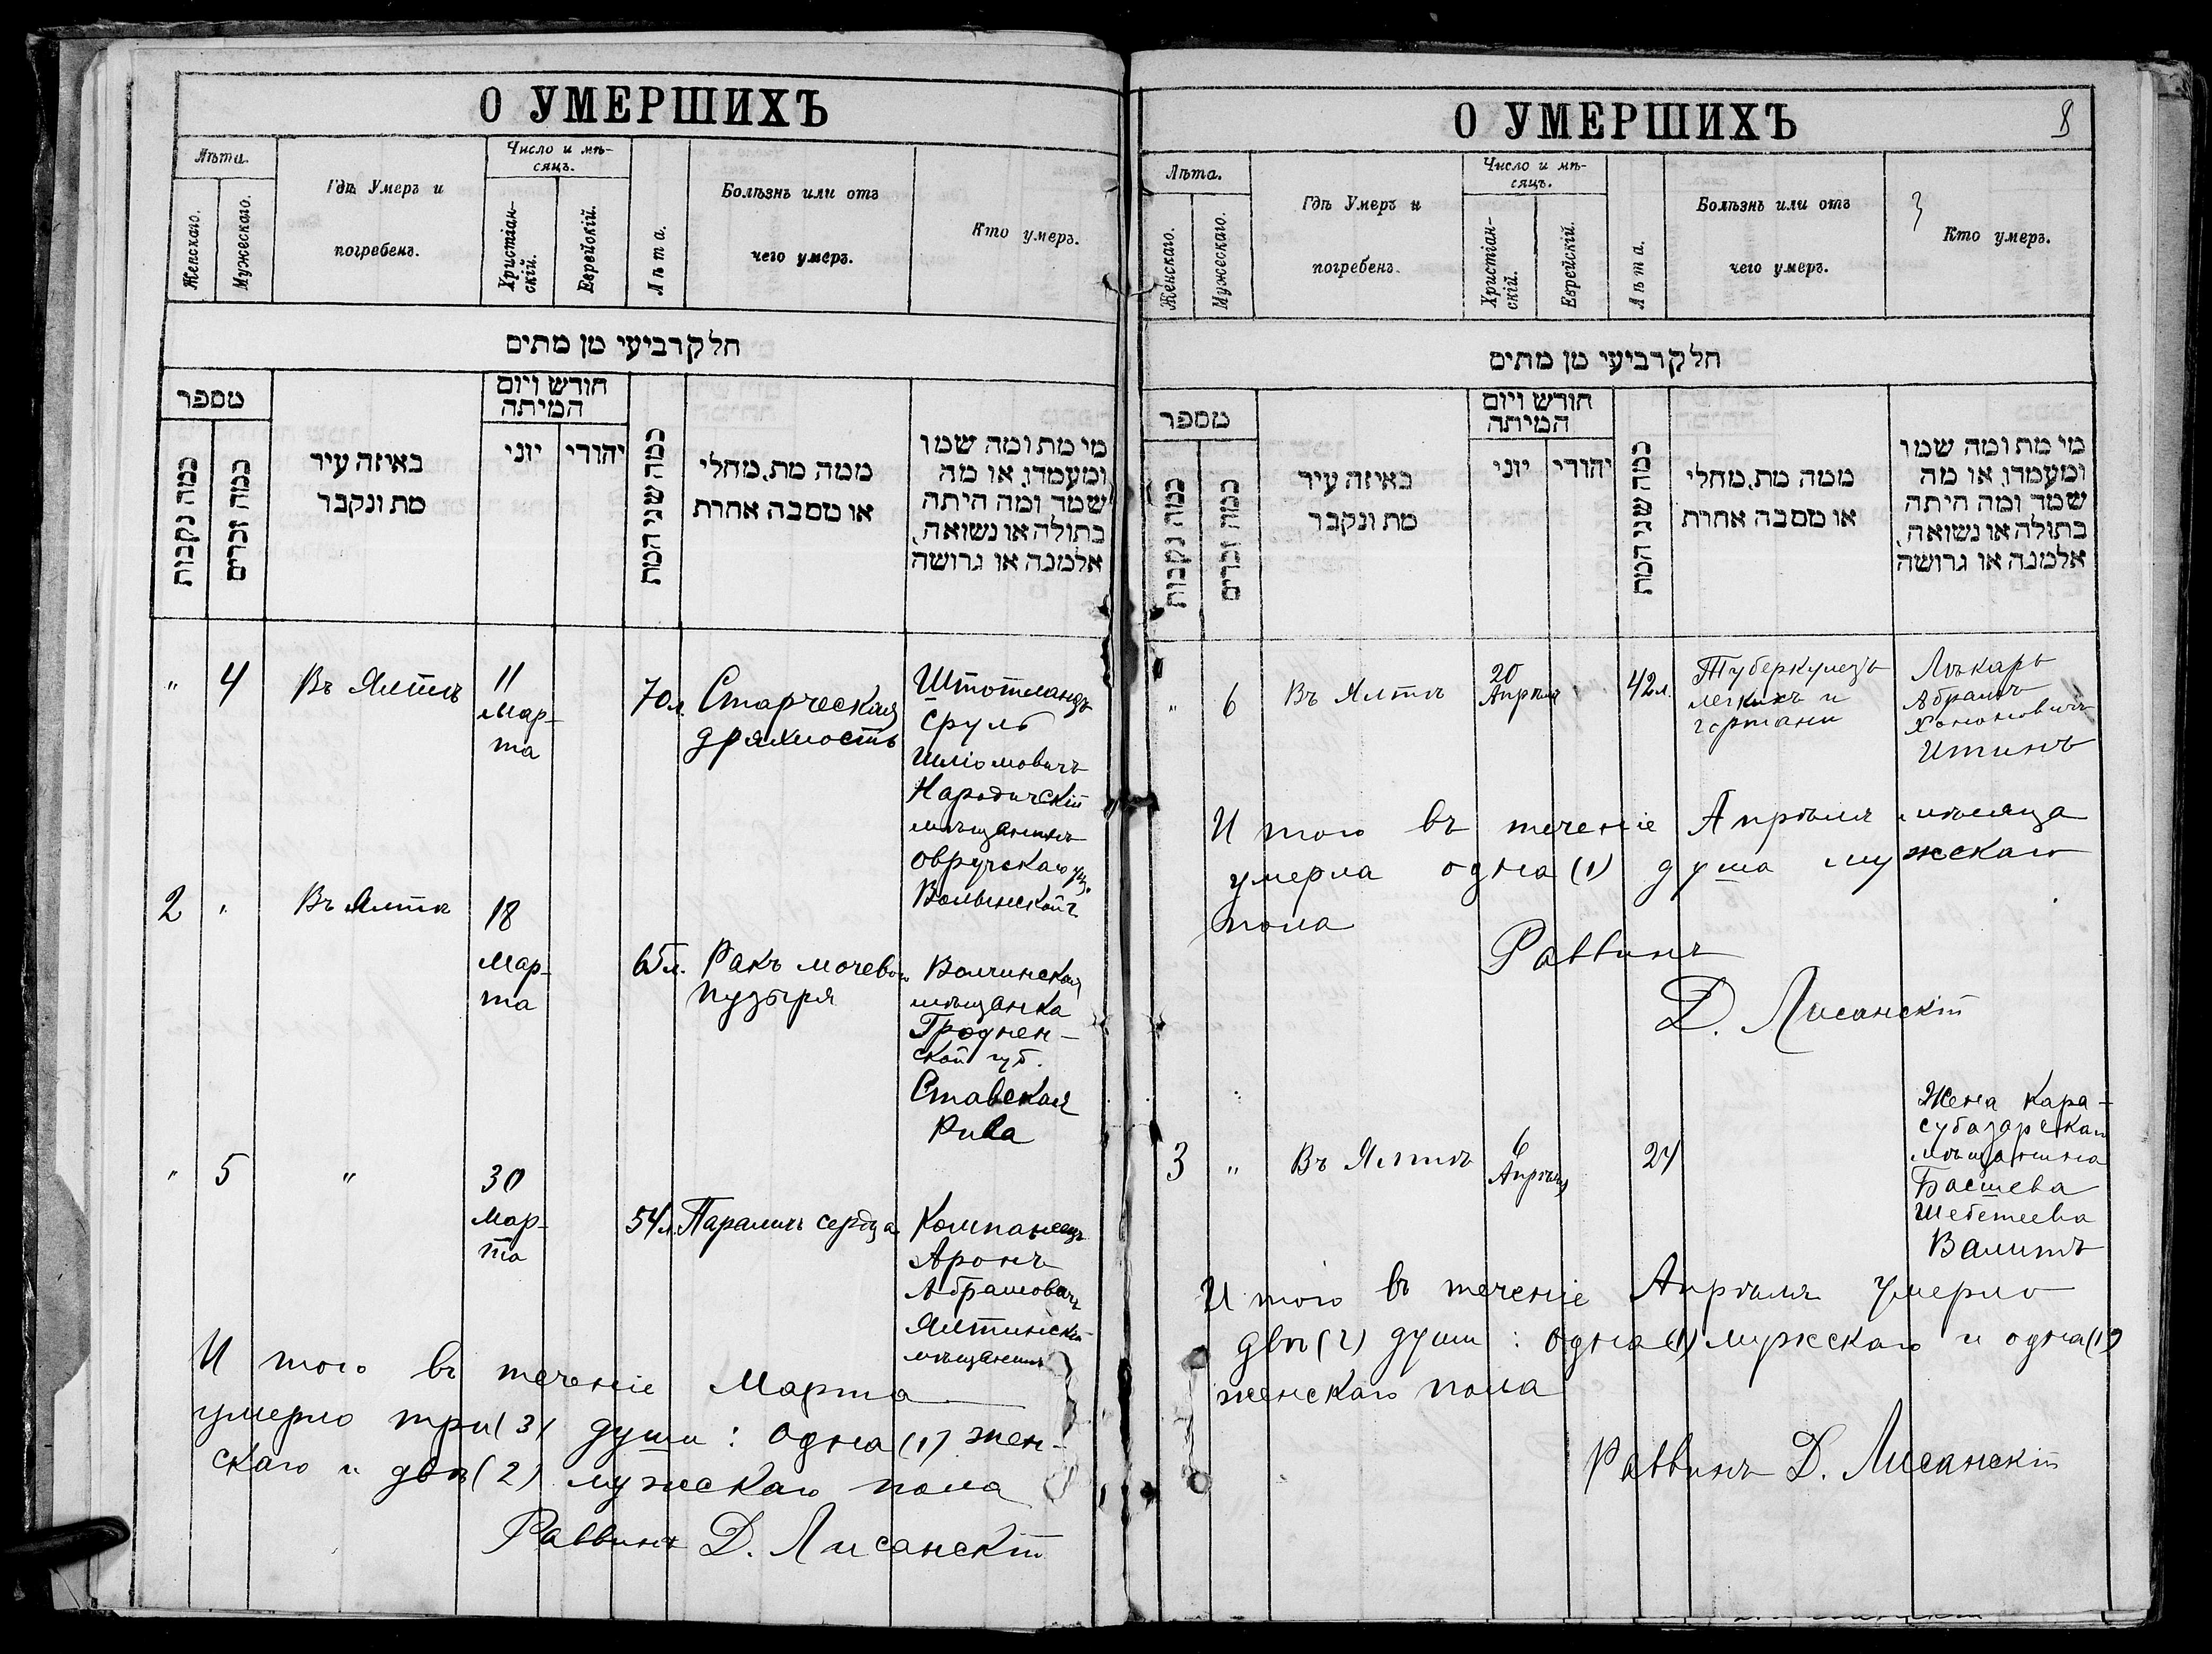 О УМЕРШИХЪ
Лѣта.
Женскаго.
Мужескаго.
Гдѣ Умеръ и
погребенъ.
Число и мѣ-
сяцъ.
Христіан-
скій.
Еврейскій.
Лѣта.
Болѣзнь или отъ
чего умеръ.
Кто умеръ.
חלק רביעי מן מתים
מספר
כמה נקבות
כמה זכרים
באיזה עיר
מת ונקבר
חודש ויום
המיתה
יוני
יהודי
כמה שני המת
ממה מת, מחלי
או מסבה אחרת
מי מת ומה שמו
ומעמדו, או מה
שמד ומה היתה
בתולה או נשואה,
אלמנה או גרושה
" 4 Въ Ялтѣ 11
Мар-
та
70 л. Старческая
дряхлость
Штотландъ
Сруль
Шліомовичъ
Народичскій
мѣщанинъ
Овручскаго уѣз.
Волынской г.
2 " Въ Ялтѣ 18
Мар-
та
65 л. Ракъ мочевого
пузыря
Волчинская
мѣщанка
Гроднен-
ской губ.
Ставская
Рива
" 5 " 30
Мар-
та
54 л. Параличъ сердца
Компанеецъ
Аронъ
Абрамовичъ
Ялтинскій
мѣщанинъ
Итого въ теченіе Марта
умерло три (3) души: одна (1) жен-
скаго и двѣ (2) мужскаго пола
Раввинъ Д. Лисанскій
О УМЕРШИХЪ
8
Лѣта.
Женскаго.
Мужескаго.
Гдѣ Умеръ и
погребенъ.
Число и мѣ-
сяцъ.
Христіан-
скій.
Еврейскій.
Лѣта.
Болѣзнь или отъ
чего умеръ.
Кто умеръ.
חלק רביעי מן מתים
מספר
כמה נקבות
כמה זכרים
באיזה עיר
מת ונקבר
חודש ויום
המיתה
יוני
יהודי
כמה שני המת
ממה מת, מחלי
או מסבה אחרת
מי מת ומה שמו
ומעמדו, או מה
שמד ומה היתה
בתולה או נשואה,
אלמנה או גרושה
" 6 Въ Ялтѣ 20
Апрѣля
42 л. Туберкулезъ
легкихъ и
гортани
Лѣкарь
Абрамъ
Хононовичъ
Итинъ
Итого въ теченіе Апрѣля мѣсяца
умерла одна (1) душа мужскаго
пола
Раввинъ
Д. Лисанскій
3 " Въ Ялтѣ 6
Апрѣля
24
Жена Кара-
субазарскаго
мѣщанина
Басшева
Шебетеева
Валитъ
Итого въ теченіе Апрѣля умерло
двѣ (2) души: одна (1) мужскаго и одна (1)
женскаго пола
Раввинъ Д. Лисанскій